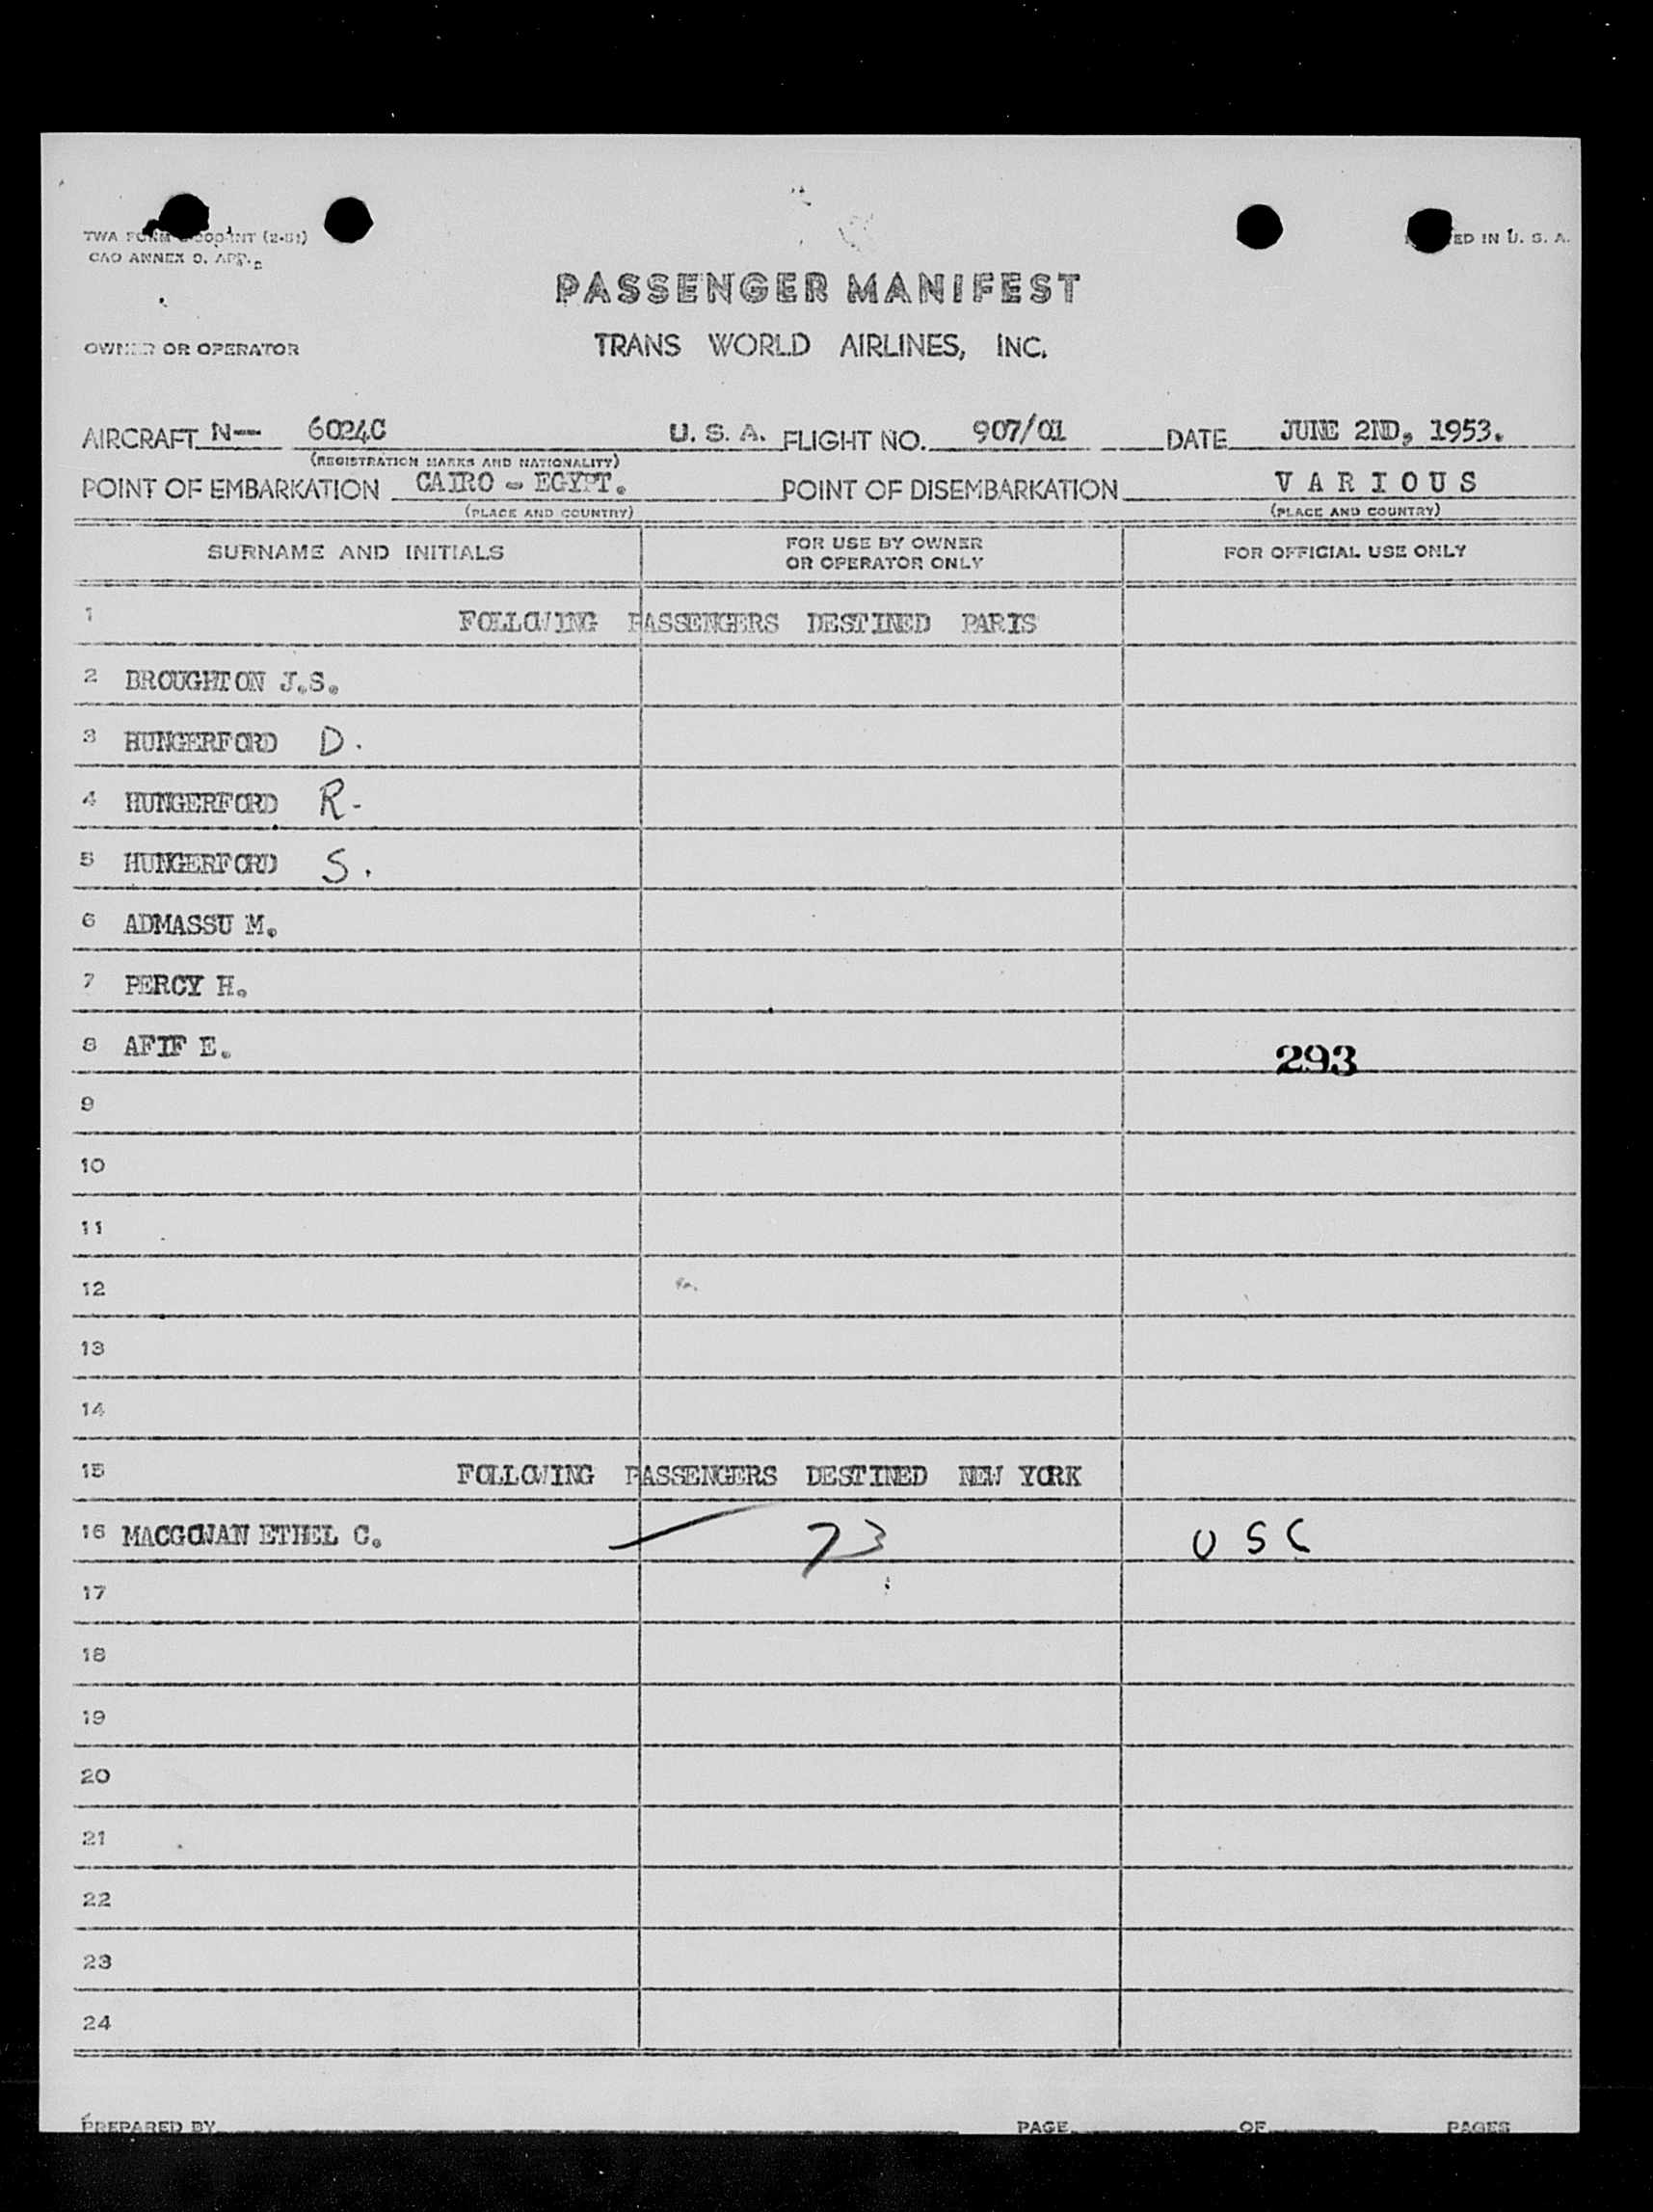 TWA FORM (2-51)
PRINTED IN U. S. A.
CAO ANNEX 9. APP.
PASSENGER MANIFEST
OWNER OR OPERATOR TRANS WORLD AIRLINES, INC.
AIRCRAFT N-- 6024C U. S. A. FLIGHT NO. 907/01 DATE JUNE 2ND, 1953.
(REGISTRATION MARKS AND NATIONALITY)
POINT OF EMBARKATION CAIRO - EGYPT. POINT OF DISEMBARKATION VARIOUS
(PLACE AND COUNTRY) (PLACE AND COUNTRY)
SURNAME AND INITIALS FOR USE BY OWNER OR OPERATOR ONLY FOR OFFICIAL USE ONLY
1 FOLLOWING PASSENGERS DESTINED PARIS
2 BROUGHTON J.S.
3 HUNGERFORD D.
4 HUNGERFORD R-
5 HUNGERFORD S.
6 ADMASSU M.
7 PERCY H.
8 AFIF E. 293
9
10
11
12
13
14
15 FOLLOWING PASSENGERS DESTINED NEW YORK
16 MACGOWAN ETHEL C. 73 USC
17
18
19
20
21
22
23
24
PREPARED BY PAGE OF PAGES